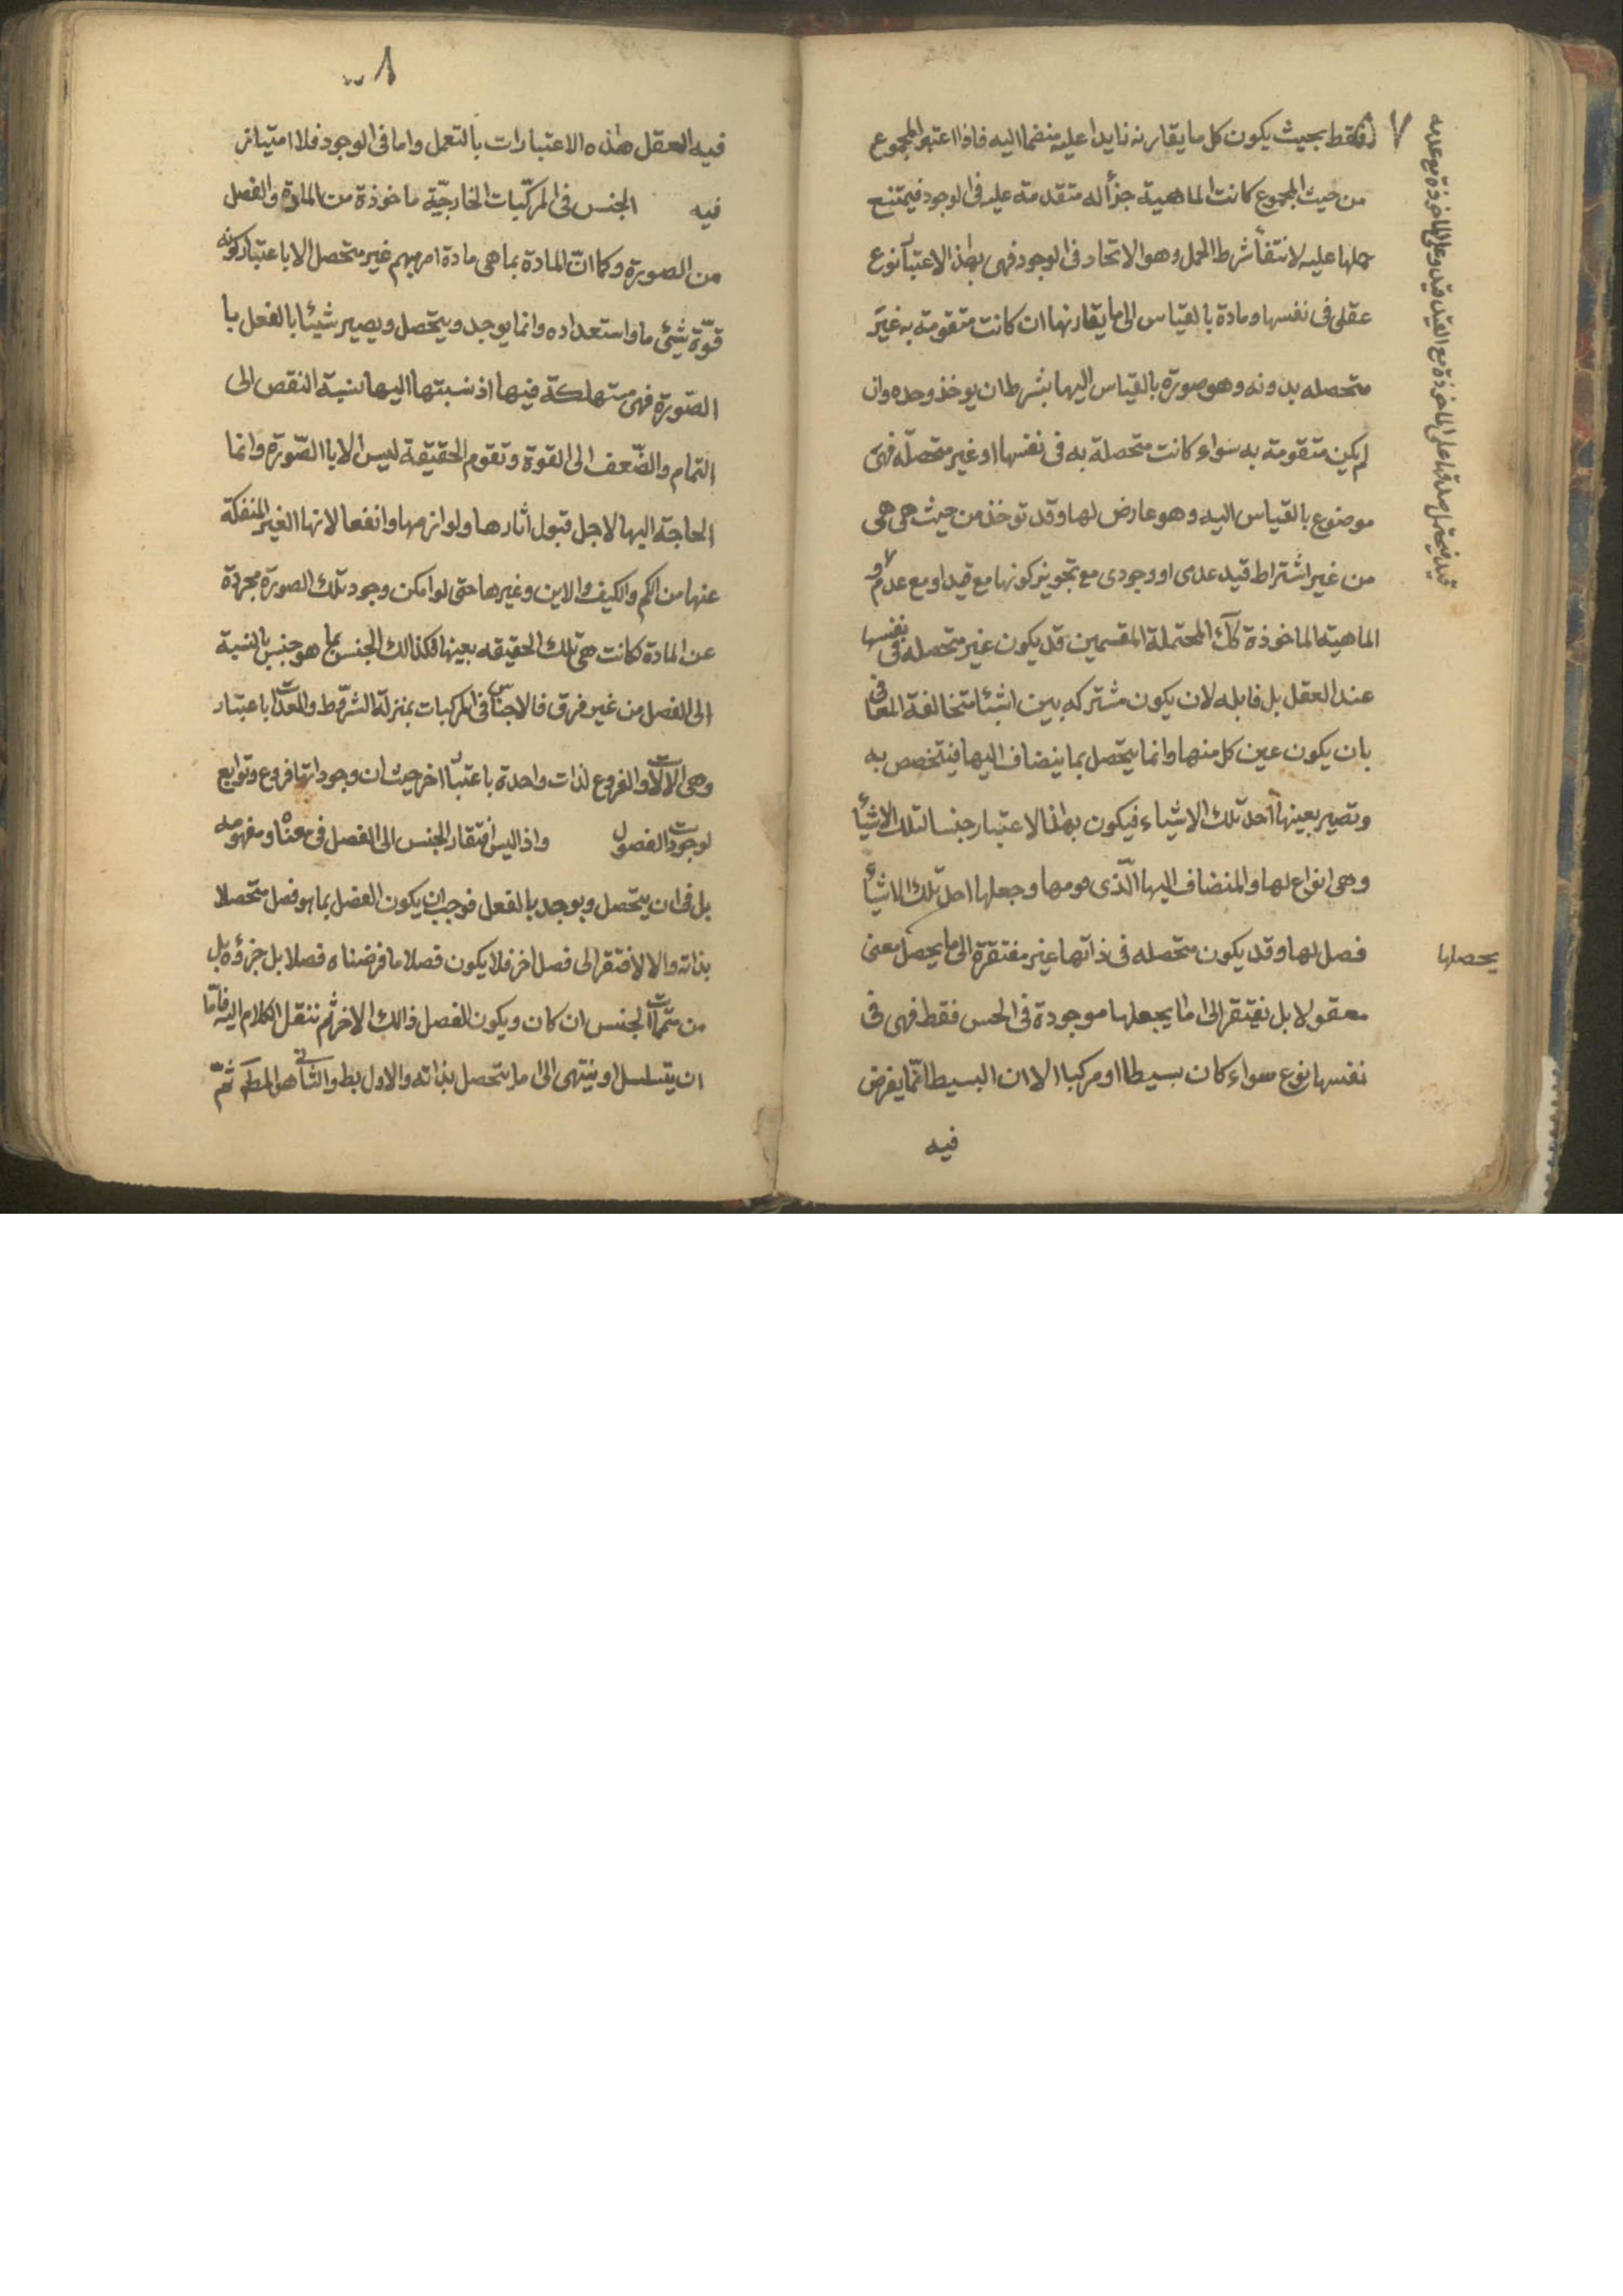 ٧
فقط بحيث يكون كل ما يقارنه زايدا عليه منضما اليه فاذا اعتبر المجموع
من حيث المجموع كانت الماهية جزأ له متقدمة عليه فى الوجود فيمتنع
حملها عليه لانتفأ شرط الحمل وهو الاتحاد فى الوجود فهى بهذا الاعتبار نوع
عقلى فى نفسها ومادة بالقياس الى ما يقارنها ان كانت متقومة به غير
متحصله بدونه وهو صورة بالقياس اليها بشرط ان يوخذ وحده وان
لم يكن متقومة به سواء كانت متحصلة به فى نفسها او غير متحصلة فهى
موضوع بالقياس اليه وهو عارض لها وقد توخذ من حيث هى هى
من غير اشتراط قيد عدمى او وجودى مع تجويز كونها مع قيد او مع عدمه و
الماهية الماخوذة كك المحتملة القسمين قد يكون غير متحصله فى نفسها
عند العقل بل قابله لان يكون مشتركه بين اشيأ متخالفة المعانى
بان يكون عين كل منها وانما يتحصل بما ينضاف اليها فيتخصص به
وتصير بعينها احد تلك الاشياء فيكون بهذا الاعتبار جنسا لتلك الاشيأ
وهى انواع لها والمنضاف اليها الّذى قومها وجعلها احد تلك الاشيأ
فصل لها وقد يكون متحصله فى ذاتها غير مفتقرة الى ما يحصل معنى
يحصلها
معقولا بل تفتقر الى ما يجعلها موجودة فى الحس فقط فهى فى
نفسها نوع سواء كان بسيطا او مركبا الا ان البسيط انّما يفرض
فيه
قيد فيحتمل صدقها على الماخوذة مع القيد وعلى الماخوذة مع عدمه
٨
فيه العقل هذه الاعتبارات بالتعمل واما فى الوجود فلا امتياز
فيه الجنس فى المركّبات الخارجيّة ماخوذة من المادة والفصل
من الصورة وكما انّ المادة بما هى مادة امر مبهم غير متحصل الا باعتبار كونه
قوّة شئ ما واستعداده وانما يوجد ويتحصل ويصير شيئا بالفعل با
الصّورة فهى مستهلكة فيها اذ نسبتها اليها نسبة النقص الى
التمام والضّعف الى القوة وتقوم الحقيقة ليس الا با الصّورة وانما
الحاجة اليها لاجل قبول اثارها ولوازمها وانفعالاتها الغير المنفكة
عنها من الكم والكيف والاين وغيرها حتى لو امكن وجود تلك الصورة مجردة
عن المادة لكانت هى تلك الحقيقه بعينها فكذالك الجنس بما هو جنس بالنسبة
الى الفصل من غير فرق فالاجناس فى المركبات بمنزلة الشرّط والمعدات باعتبار
وهى الالات والفروع لذات واحدة باعتبار اخر حيث ان وجوداتها فروع وتوابع
لوجودات الفصول واذ ليس افتقار الجنس الى الفصل فى معناه ومفهومه
بل فى ان يتحصل ويوجد بالفعل فوجب ان يكون الفصل بما هو فصل متحصلا
بذاته والا لافتقر الى فصل اخر فلا يكون فصلا ما فرضناه فصلا بل جزؤه بل
من متممات الجنس ان كان ويكون الفصل ذالك الاخر ثم ننقل الكلام اليه فامّا
ان يتسلسل او ينتهى الى ما يتحصل بذاته والاول بط والثانى هو المط ثمّ